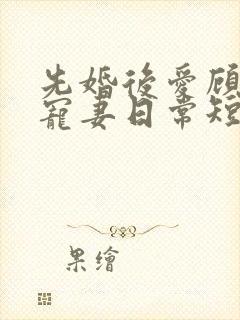 先婚後愛顧
寵妻日常短
果繪